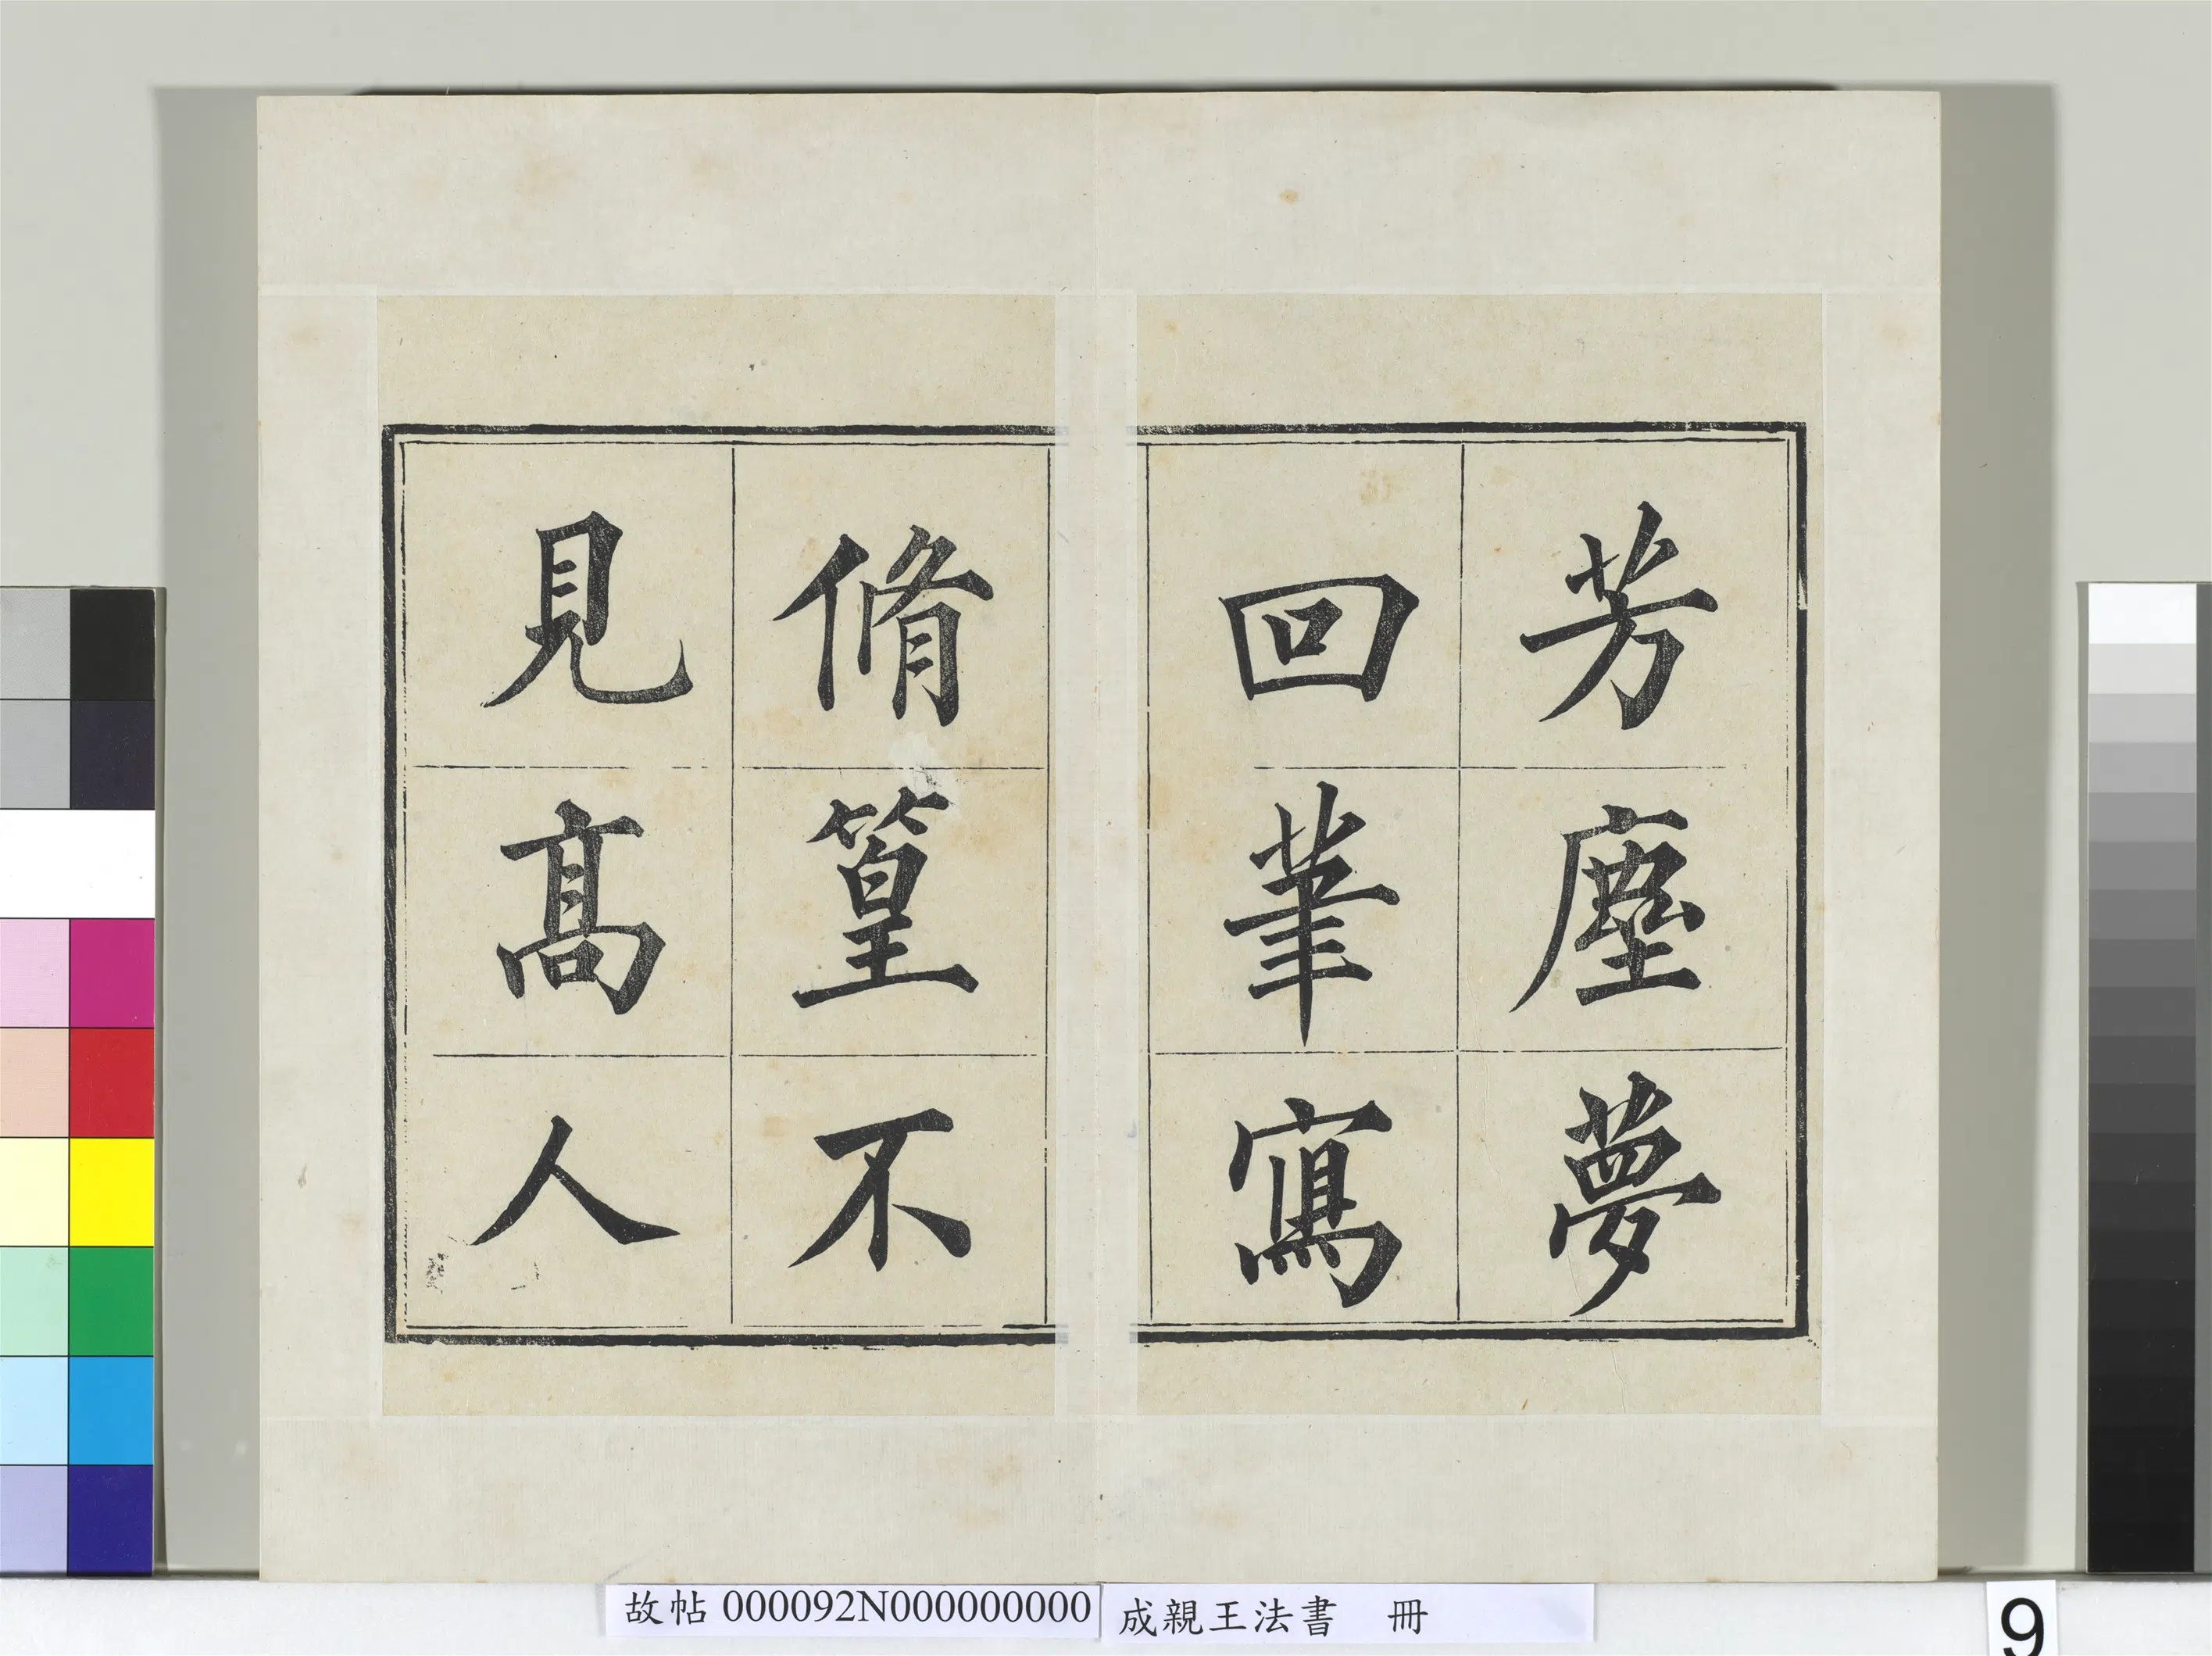 芳塵夢
回筆寫
脩篁不
見髙人
故帖 000092N000000000
成親王法書 冊
9